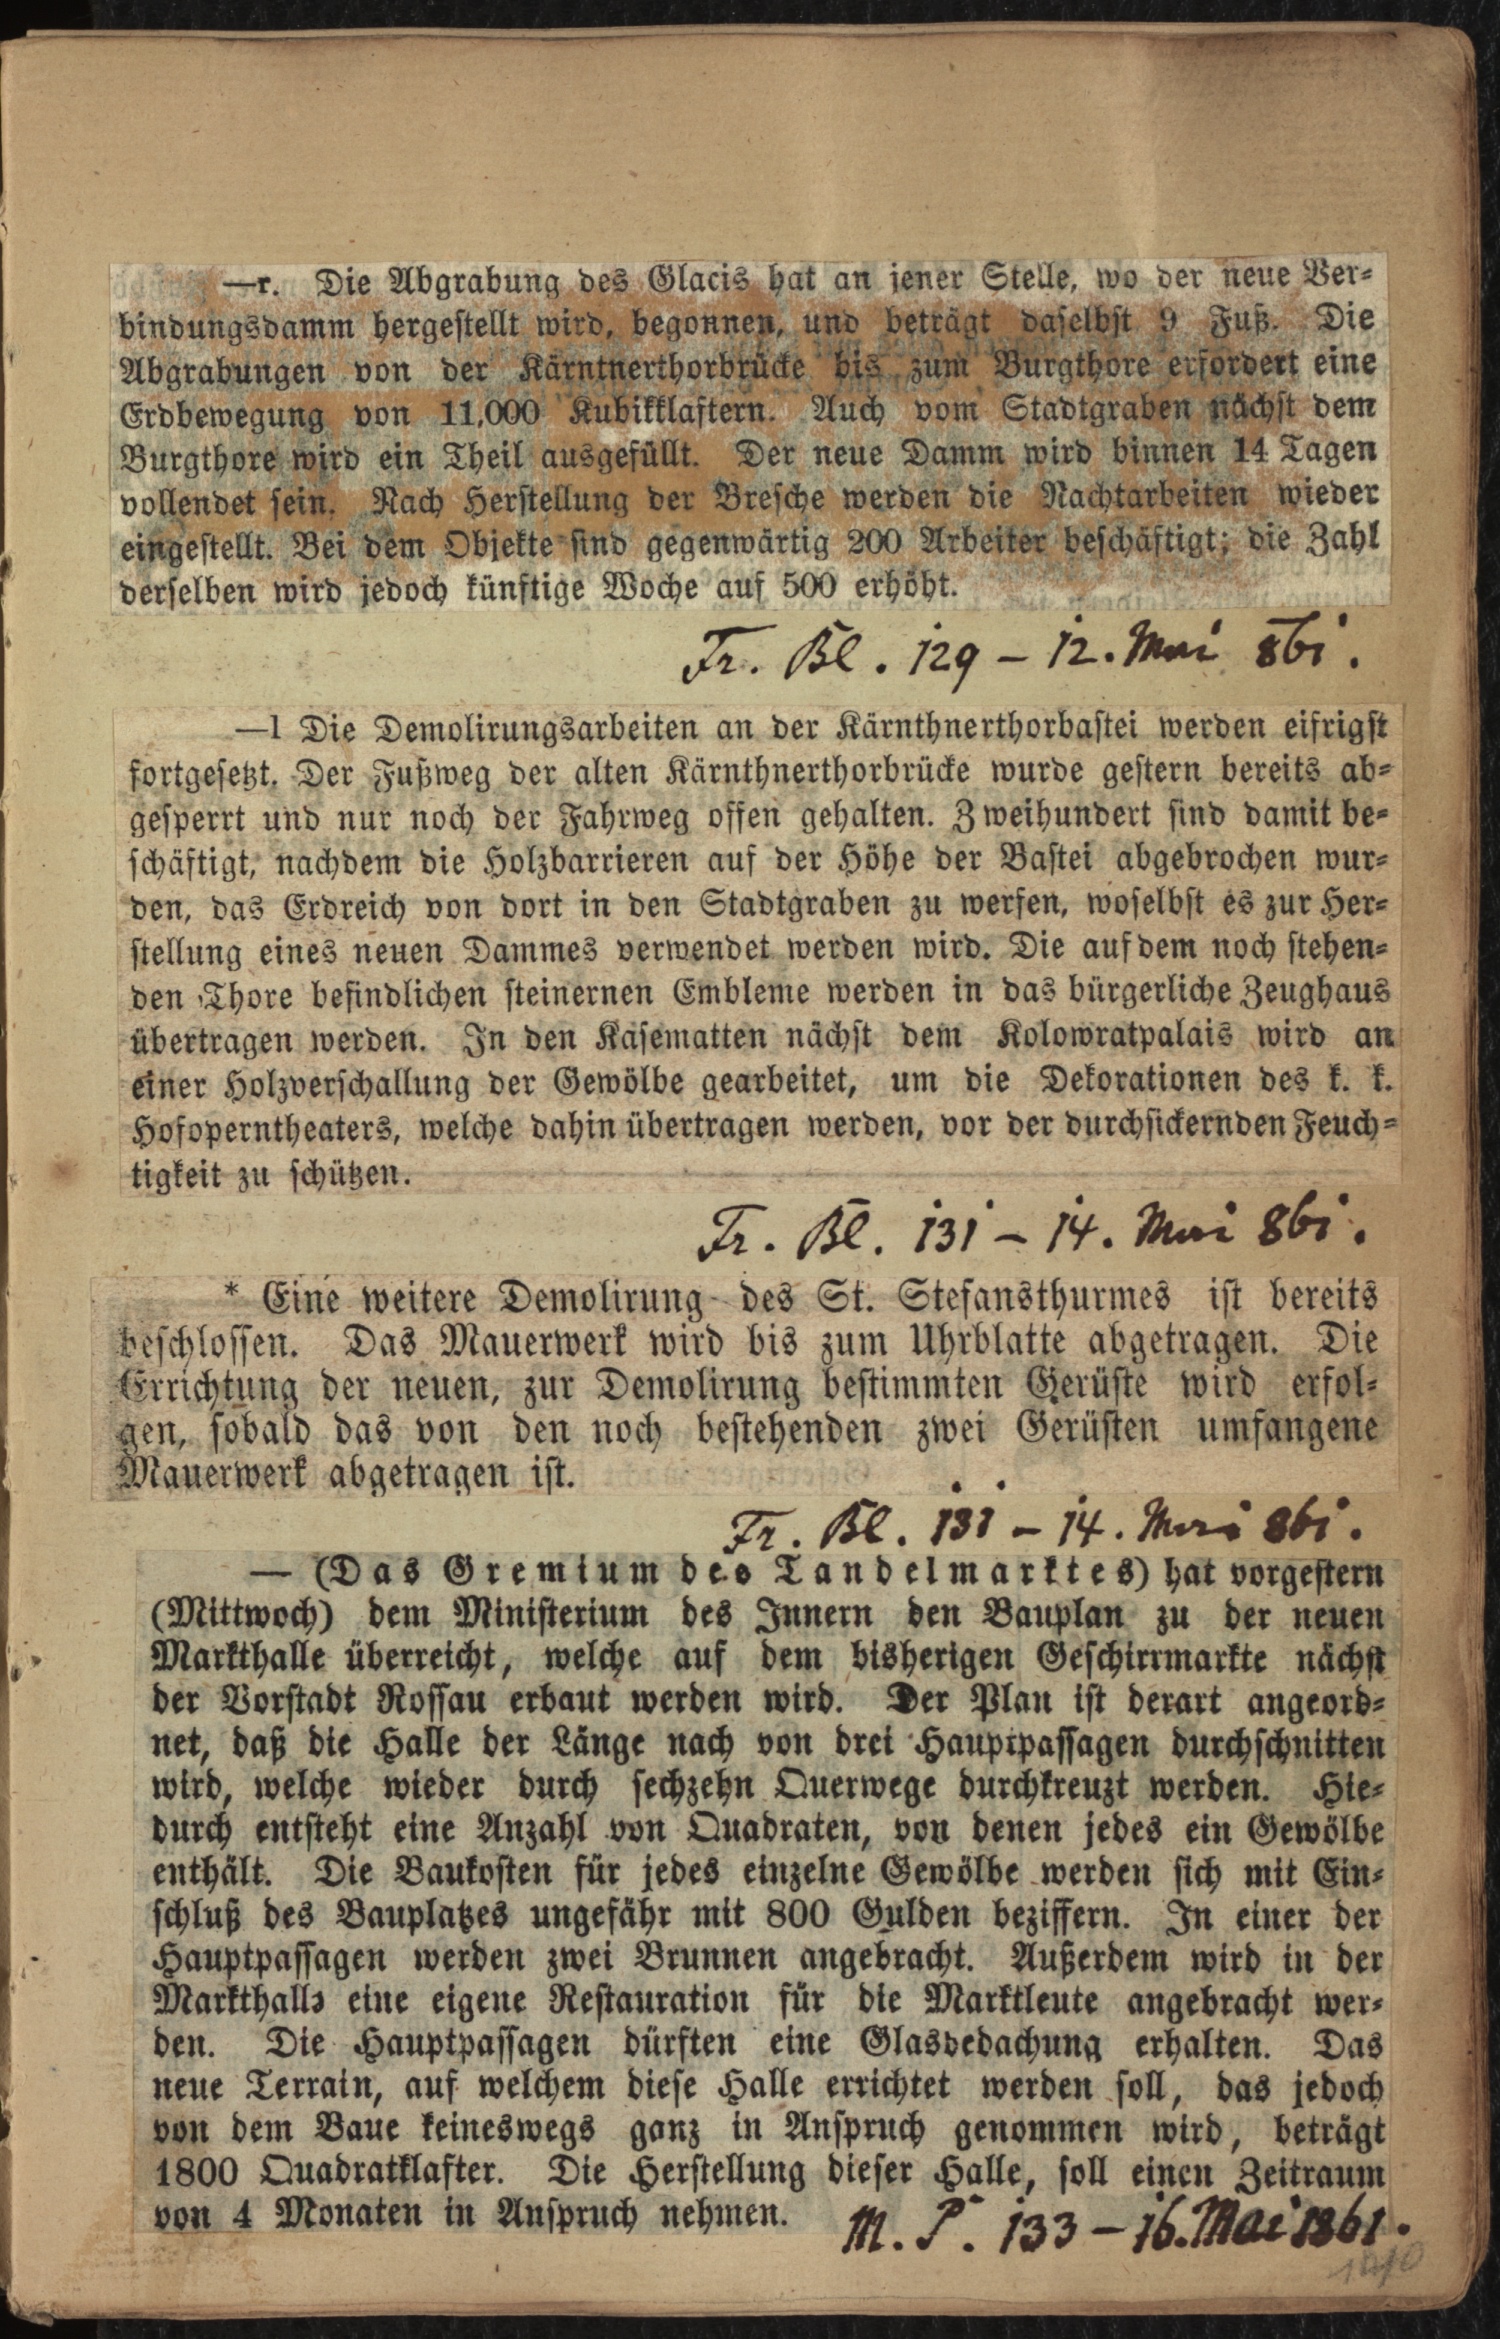 —r. Die Abgrabung des Glacis hat an jener Stelle, wo der neue Ver-
bindungsdamm hergestellt wird, begonnen, und beträgt daselbst 9 Fuß. Die
Abgrabungen von der Kärntnerthorbrücke bis zum Burgthore erfordert eine
Erdbewegung von 11,000 Kubikklaftern. Auch vom Stadtgraben nächst dem
Burgthore wird ein Theil ausgefüllt. Der neue Damm wird binnen 14 Tagen
vollendet sein. Nach Herstellung der Bresche werden die Nachtarbeiten wieder
eingestellt. Bei dem Objekte sind gegenwärtig 200 Arbeiter beschäftigt; die Zahl
derselben wird jedoch künftige Woche auf 500 erhöht.
Fr. Bl. 129 – 12. Mai 861.
—l Die Demolirungsarbeiten an der Kärnthnerthorbastei werden eifrigst
fortgesetzt. Der Fußweg der alten Kärnthnerthorbrücke wurde gestern bereits ab-
gesperrt und nur noch der Fahrweg offen gehalten. Zweihundert sind damit be-
schäftigt, nachdem die Holzbarrieren auf der Höhe der Bastei abgebrochen wur-
den, das Erdreich von dort in den Stadtgraben zu werfen, woselbst es zur Her-
stellung eines neuen Dammes verwendet werden wird. Die auf dem noch stehen-
den Thore befindlichen steinernen Embleme werden in das bürgerliche Zeughaus
übertragen werden. In den Kasematten nächst dem Kolowratpalais wird an
einer Holzverschallung der Gewölbe gearbeitet, um die Dekorationen des k. k.
Hofoperntheaters, welche dahin übertragen werden, vor der durchsickernden Feuch-
tigkeit zu schützen.
Fr. Bl. 131 – 14. Mai 861.
* Eine weitere Demolirung des St. Stefansthurmes ist bereits
beschlossen. Das Mauerwerk wird bis zum Uhrblatte abgetragen. Die
Errichtung der neuen, zur Demolirung bestimmten Gerüste wird erfol-
gen, sobald das von den noch bestehenden zwei Gerüsten umfangene
Mauerwerk abgetragen ist.
Fr. Bl. 131 – 14. Mai 861.
— (Das Gremium des Tandelmarktes) hat vorgestern
(Mittwoch) dem Ministerium des Innern den Bauplan zu der neuen
Markthalle überreicht, welche auf dem bisherigen Geschirrmarkte nächst
der Vorstadt Rossau erbaut werden wird. Der Plan ist derart angeord-
net, daß die Halle der Länge nach von drei Hauptpassagen durchschnitten
wird, welche wieder durch sechzehn Querwege durchkreuzt werden. Hie-
durch entsteht eine Anzahl von Quadraten, von denen jedes ein Gewölbe
enthält. Die Baukosten für jedes einzelne Gewölbe werden sich mit Ein-
schluß des Bauplatzes ungefähr mit 800 Gulden beziffern. In einer der
Hauptpassagen werden zwei Brunnen angebracht. Außerdem wird in der
Markthalle eine eigene Restauration für die Marktleute angebracht wer-
den. Die Hauptpassagen dürften eine Glasbedachung erhalten. Das
neue Terrain, auf welchem diese Halle errichtet werden soll, das jedoch
von dem Baue keineswegs ganz in Anspruch genommen wird, beträgt
1800 Quadratklafter. Die Herstellung dieser Halle, soll einen Zeitraum
von 4 Monaten in Anspruch nehmen.
M. P. 133 – 16. Mai 1861.